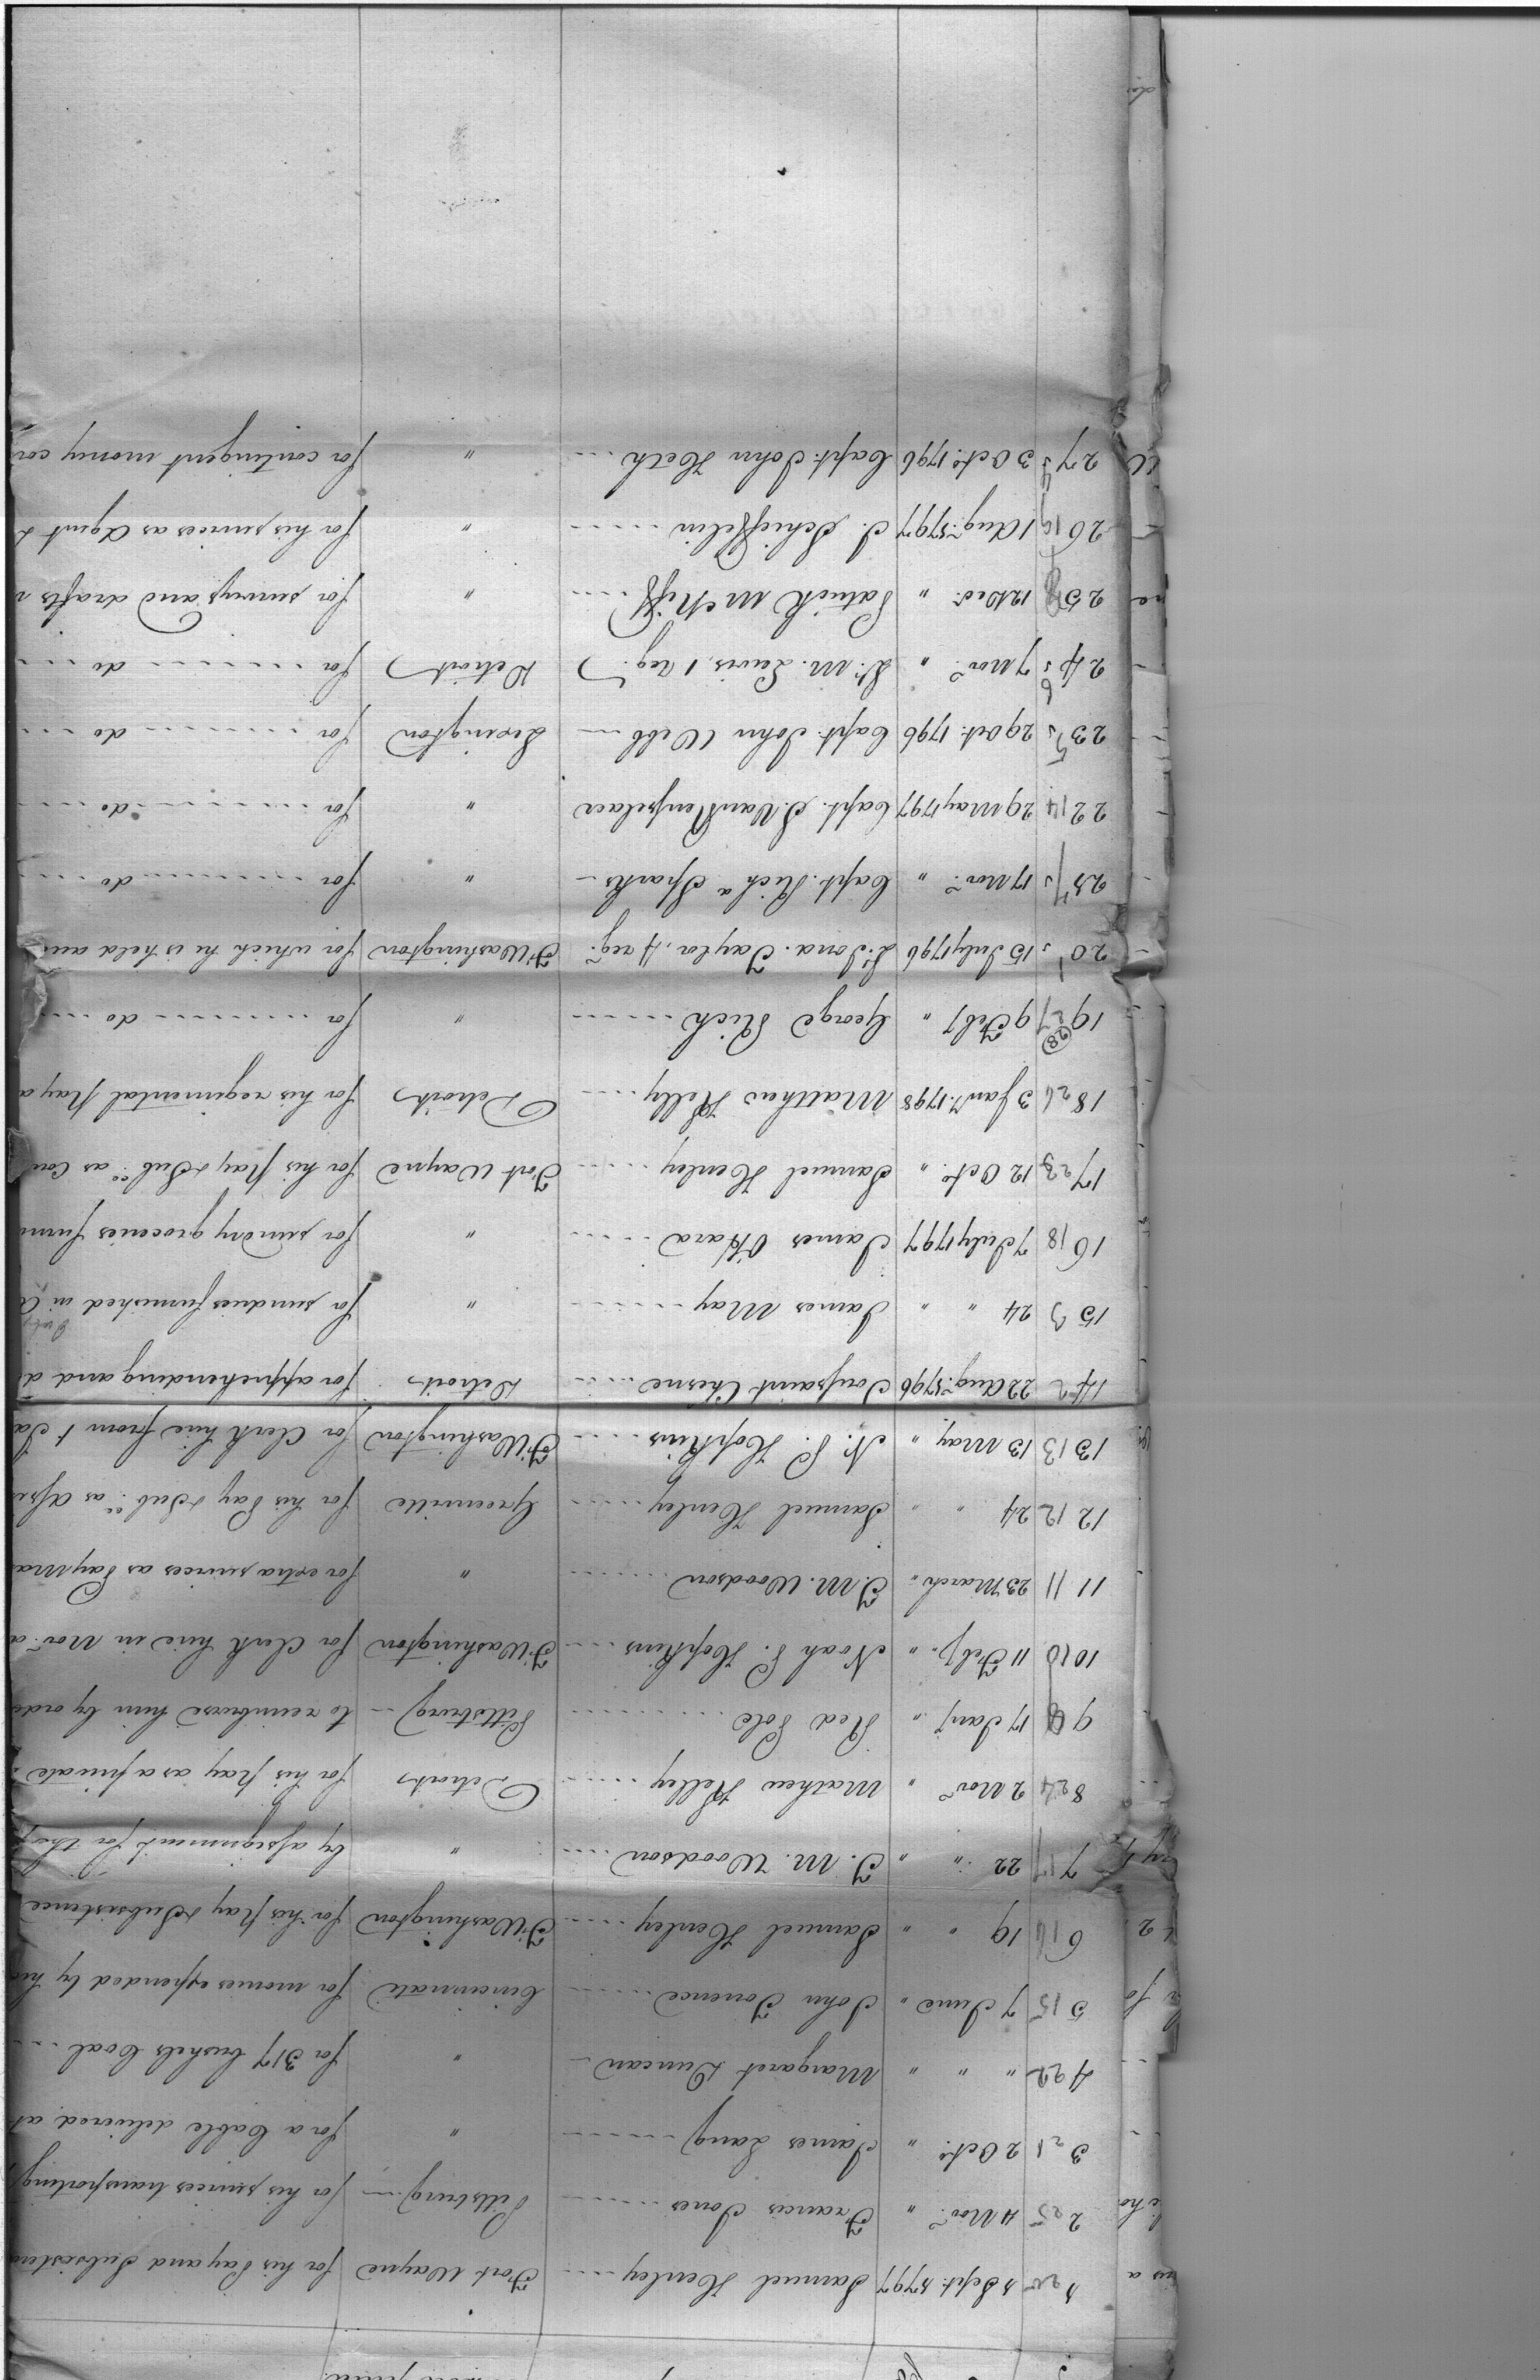 1 20 1 Sept. 1797 Samuel Henley Fort Wayne for his Pay and Subsisten
2 25 4 Nov.r " Francis Jones Pittsburg for his services transporting
3 21 2 Oct.o " James Lang " for a Cable delivered at
4 22 " " " Margaret Duncan " for 317 bushels Coal
5 15 7 June " John Torrence Cincinnati for monies expended by hi
6 16 19 " " Samuel Henley Ft Washington for his pay & Subsistence
7 17 22 " " T. M. Woodson " by assignment for
8 24 2 Nov.r " Mathew Kelley Detroit for his pay as a private
9 9 17 Jany. " Red Pole Pittsburg to reimburse him by orde
10 10 11 Feby. " Noah P. Hopkins Ft Washington for Clerk hire in Nov.r a
11 11 23 March " T. M. Woodson " for extra services as Pay Ma
12 12 24 " " Samuel Henley Greenville for his Pay & Sub.ce as
13 13 13 May " N. P. Hopkins Ft Washington for Clerk hire from 1 Ja
14 2 22 Aug.t 1796 Toussaint Chesne Detroit for apprehending and d
15 3 24 " " James May " for sundries furnished in
16 18 7 July 1797 James O'Hara " for sundry groceries furn
17 23 12 Oct.o " Samuel Henley Fort Wayne for his pay & Sub.ce as Con
18 26 3 Jan.y 1798 Matthew Kelly Detroit for his regimental pay a
19 27 (28) 9 Feby " George Rich " for do
20 1 15 July 1796 Lt. Jona. Taylor, 4 reg.t Ft Washington for which he is held
21 7 17 Nov.r " Capt. Rich.d Sparks " for do
22 14 29 May 1797 Capt. S. Van Rensselaer " for do
23 5 29 Oct. 1796 Capt. John Webb Lexington for do
24 6 7 Nov.r " Lt. M. Lewis, 1 Reg.t Detroit for do
25 8 12 Dec.r " Patrick McNiff " for surveys and drafts
26 19 1 Aug.t 1797 J. Schieffelin " for his services as Agent
27 4 3 Oct.o 1796 Capt. John Heth " for contingent money